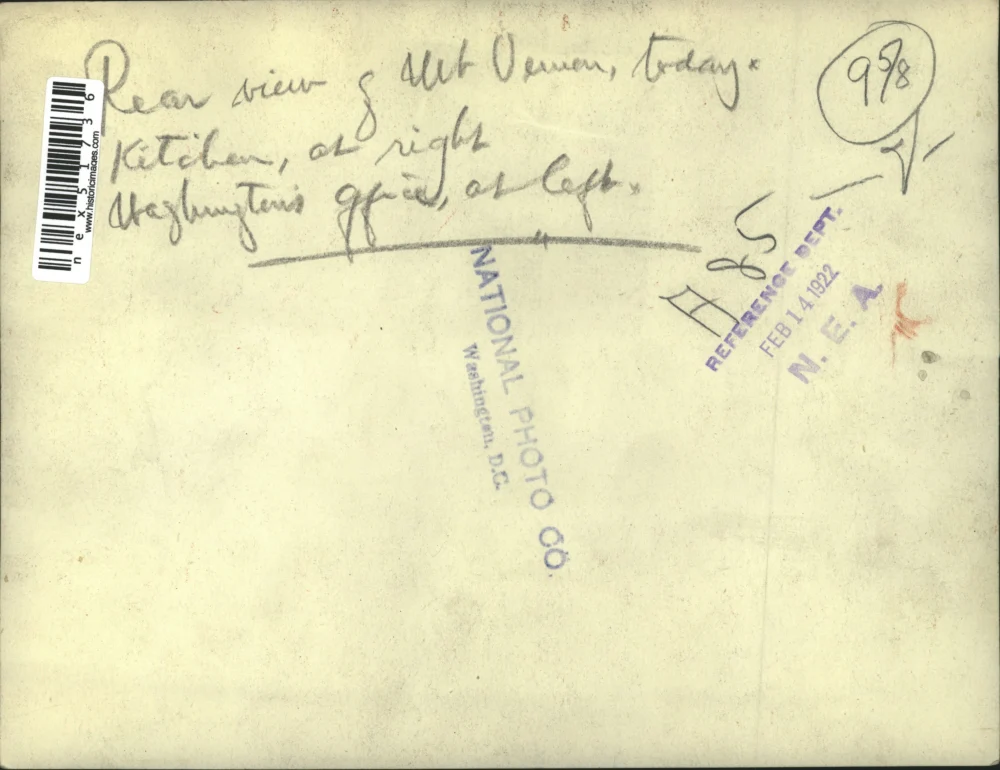 Rear view of Mt Vernon, today.
Kitchen, at right
Washington's office, at left.
9 5/8
H 85
NATIONAL PHOTO CO.
Washington, D.C.
REFERENCE DEPT.
FEB 14 1922
N. E. A.
nex51736
www.historicimages.com